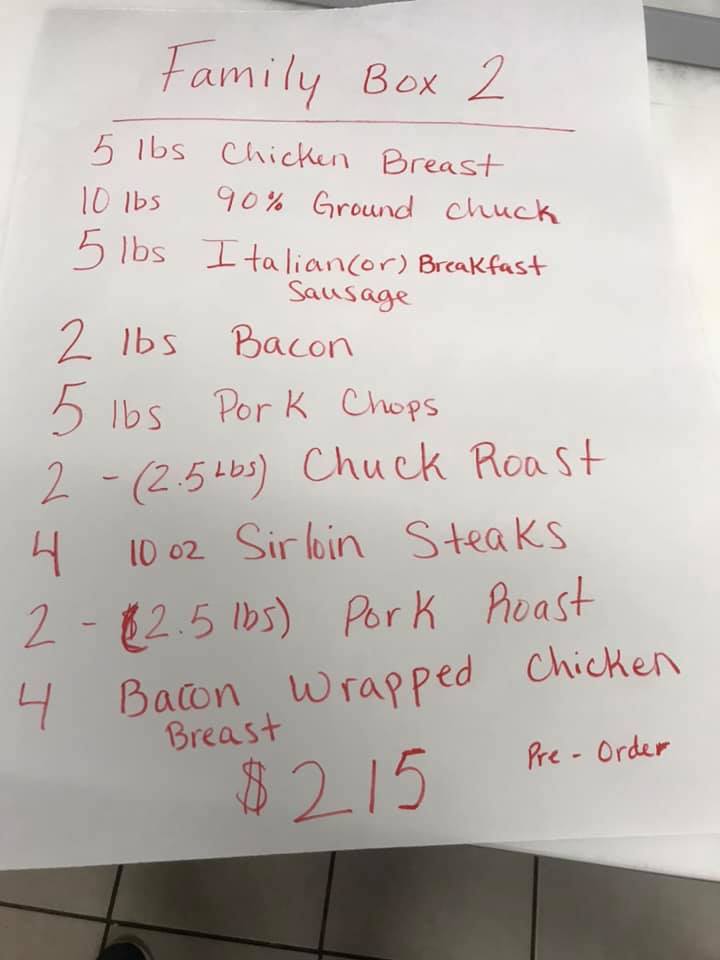 Family Box 2
5 lbs Chicken Breast
10 lbs 90% Ground chuck
5 lbs Italian(or) Breakfast
Sausage
2 lbs Bacon
5 lbs Pork Chops
2 - (2.5 Lbs) Chuck Roast
4 10 oz Sirloin Steaks
2 - (2.5 lbs) Pork Roast
4 Bacon Wrapped Chicken
Breast
$215 Pre-Order